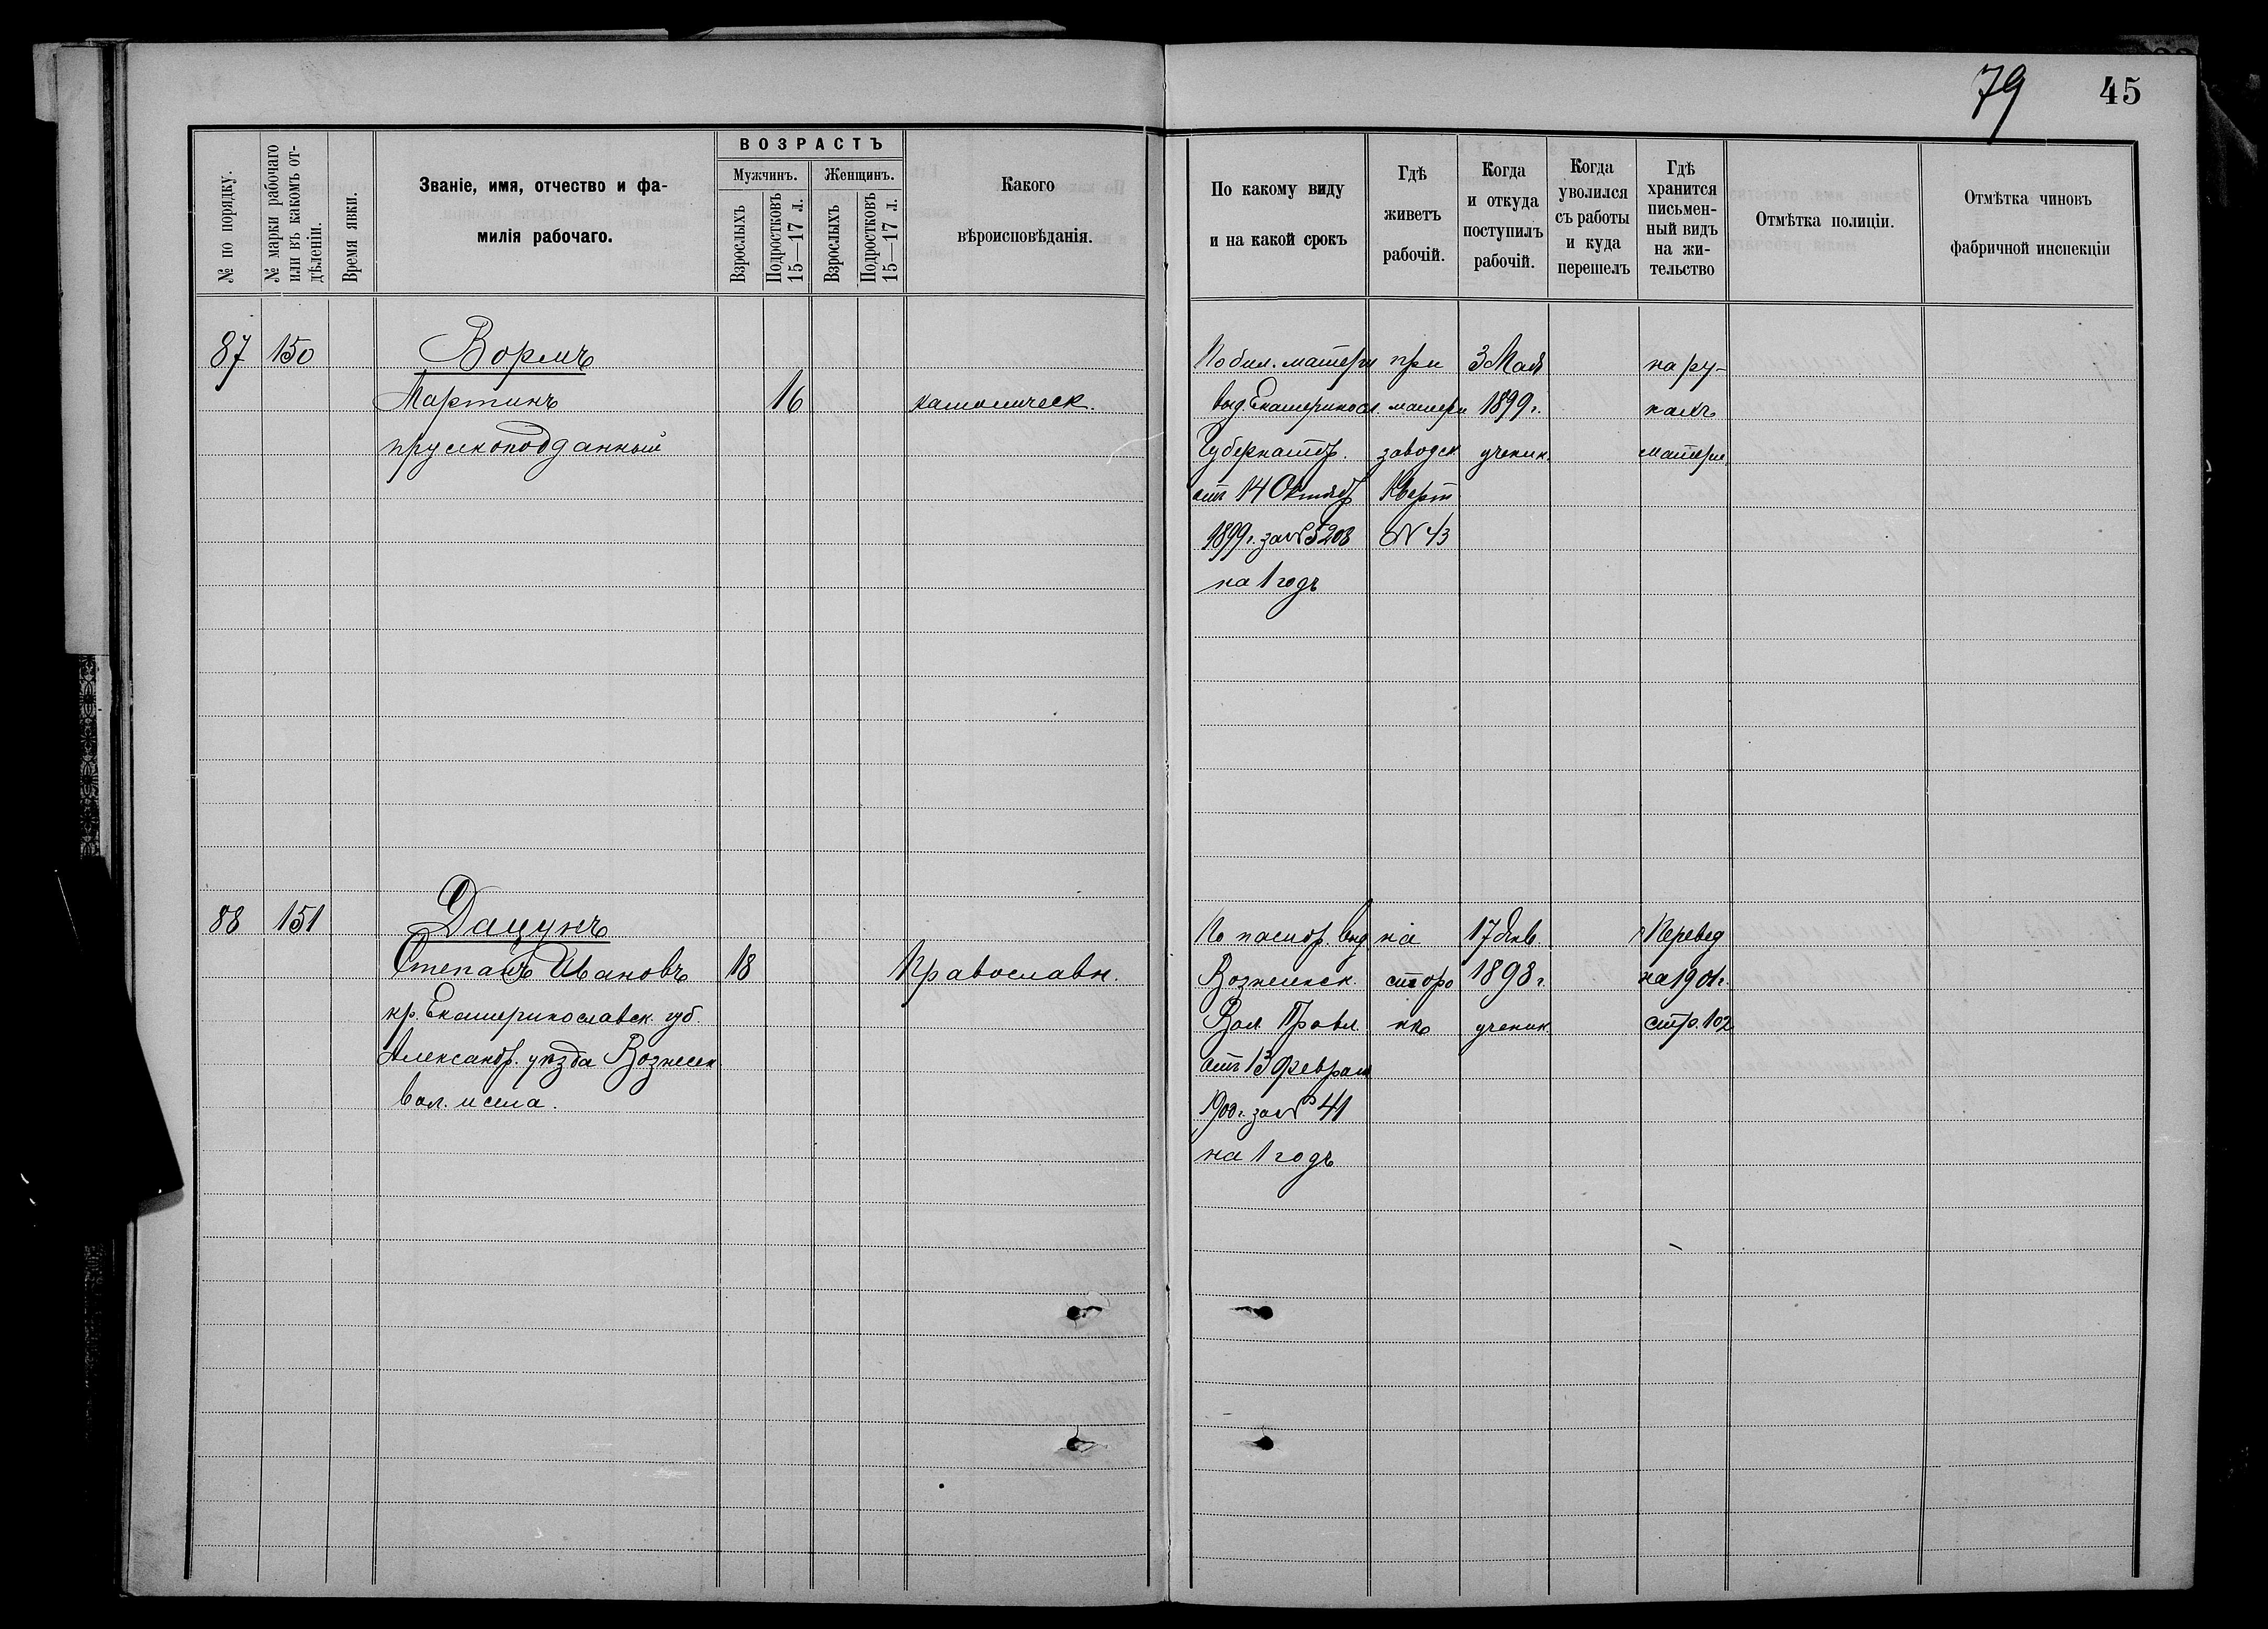 79 45
№ по порядку.
№ марки рабочаго
или въ какомъ от-
дѣленіи.
Время явки.
Званіе, имя, отчество и фа-
милія рабочаго.
ВОЗРАСТЪ
Мужчинъ. Женщинъ.
Взрослыхъ
Подростковъ
15—17 л.
Взрослыхъ
Подростковъ
15—17 л.
Какого
вѣроисповѣданія.
По какому виду
и на какой срокъ
Гдѣ
живетъ
рабочій.
Когда
и откуда
поступилъ
рабочій.
Когда
уволился
съ работы
и куда
перешелъ
Гдѣ
хранится
письмен-
ный видъ
на жи-
тельство
Отмѣтка полиціи.
Отмѣтка чиновъ
фабричной инспекціи
87 150 Вормъ
Мартинъ 16 католическ.
прускоподданный
По бил. матери
выд. Екатеринос.
Губернатор.
отъ 14 Октяб
1899 г. за № 5208
на 1 годъ
при
матери
заводск
Кварт
№ 43
3 Мая
1899 г.
ученик.
на ру-
кахъ
матери
88 151 Дацунъ
Степанъ Ивановъ 18 Православн.
кр. Екатеринославск. губ
Александр. уѣзда Вознесен
вол. и села.
По паспор. выд
Вознесенск.
Вол. Правл.
отъ 13 Феврал
1900 г. за № 41
на 1 годъ
на
сторо
нѣ
17 Янв.
1898 г.
ученик
Перевед
на 1901 г.
стр. 102